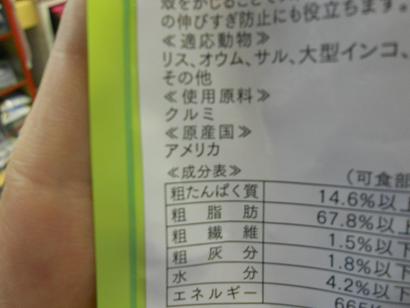 殻をかじることで
の伸びすぎ防止にも役立ちます。
≪適応動物≫
リス、オウム、サル、大型インコ、
その他
≪使用原料≫
クルミ
≪原産国≫
アメリカ
≪成分表≫ (可食部
粗たんぱく質 14.6%以上
粗脂肪 67.8%以上
粗繊維 1.5%以下
粗灰分 1.8%以下
水分 4.2%以下
エネルギー